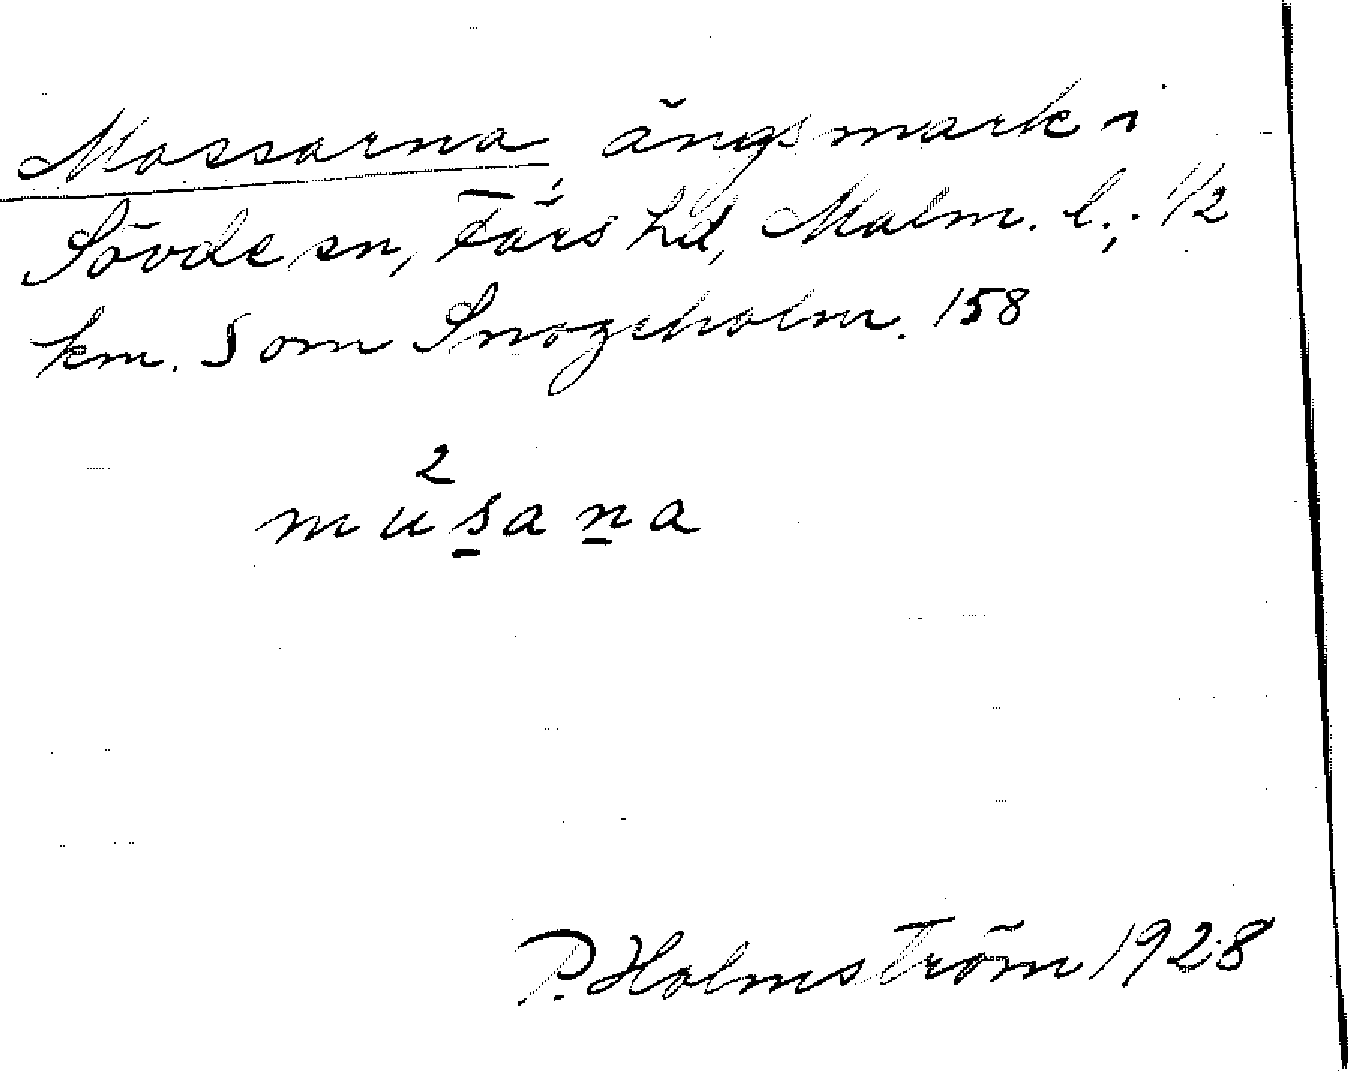 Mossarna ängsmark i
Sövde sn, Färs hd, Malm. l.; 1/2
km. S om Snogeholm. 158
2
mus̲an̲a
P. Holmström 1928